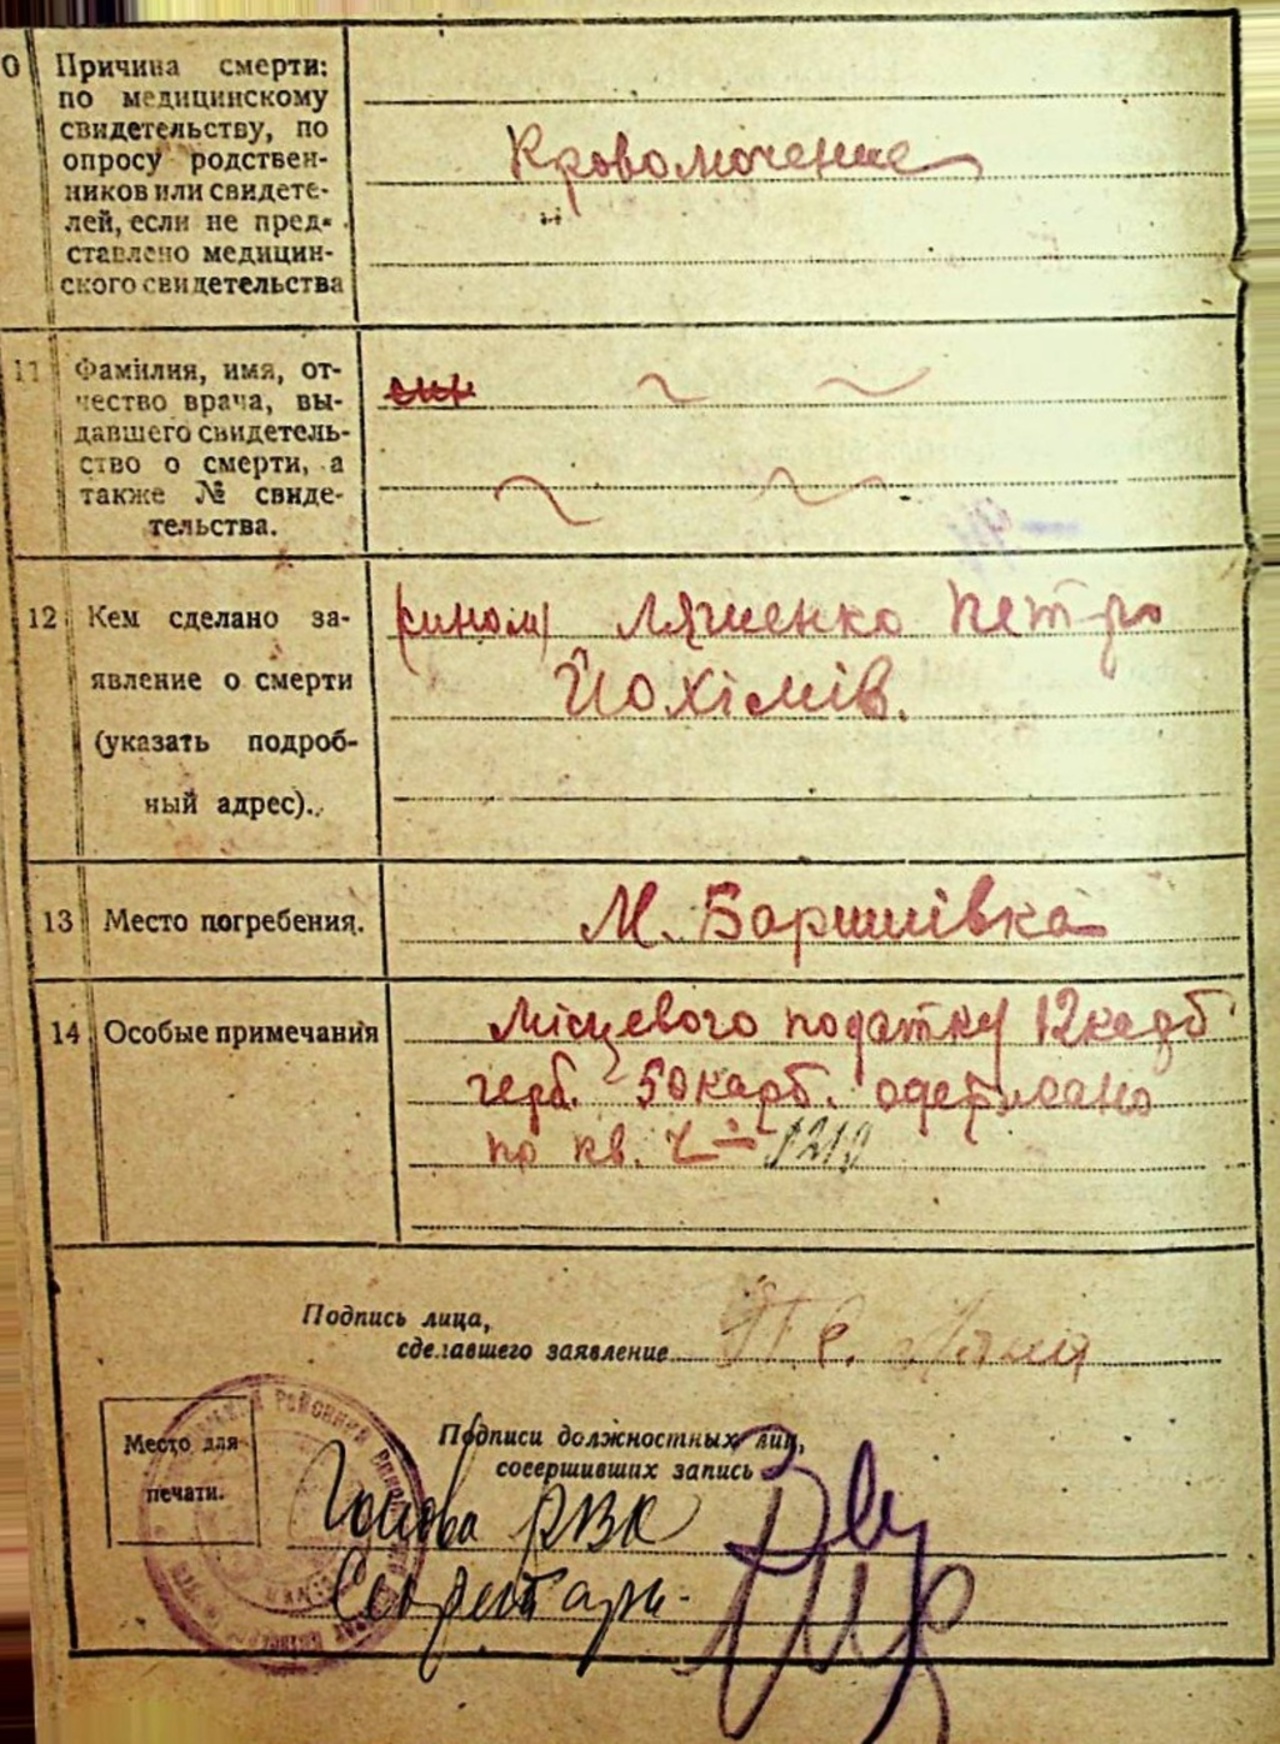 0 Причина смерти:
по медицинскому
свидетельству, по
опросу родствен-
ников или свидете-
лей, если не пред-
ставлено медицин-
ского свидетельства
Кровомочение
11 Фамилия, имя, от-
чество врача, вы-
давшего свидетель-
ство о смерти, а
также № свиде-
тельства.
12 Кем сделано за-
явление о смерти
(указать подроб-
ный адрес).
(сином) Ляшенко Петро
Йохімів.
13 Место погребения.
М. Боришівка
14 Особые примечания
Місцевого податку 12 карб
герб. 50 карб. одержано
по кв. Ч 1210
Подпись лица,
сделавшего заявление
Место для
печати.
Подписи должностных лиц,
совершивших запись
Голова РВК
Секретарь